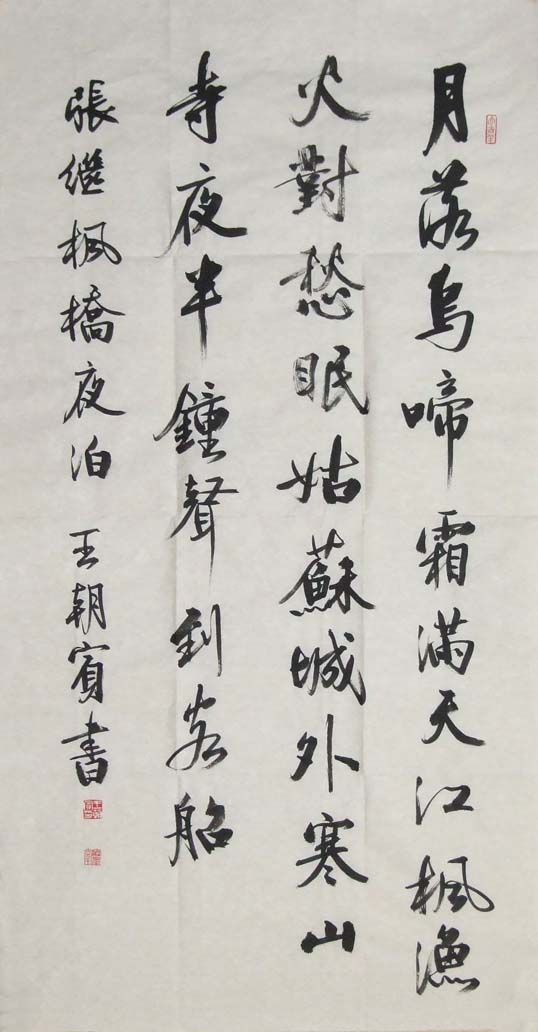 月落烏啼霜满天江枫漁
火對愁眠姑蘇城外寒山
寺夜半鐘聲到客船
張继枫橋夜泊 王朝賓書